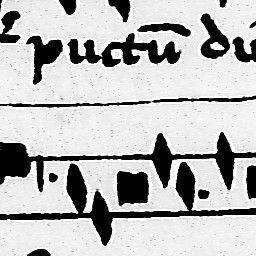 puctū dū